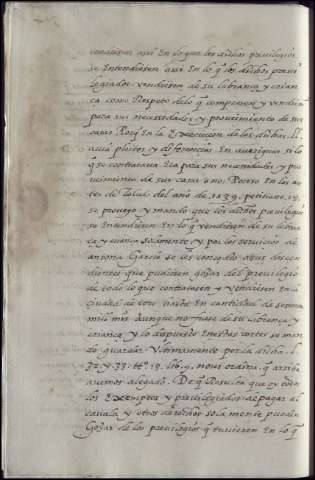 assi En lo que los dichos privilegios
se Entendiesen assi En lo q̃ los dichos previ
legiados vendiesen de su labrança y crian
ça como Respeto de lo q̃ comprasen y vendiesen
para sus necessidades y proveimiento de sus
casas Porq̃ En la Execucion de los dichos
avia pleitos y diferencias En averiguar si lo
q̃ se contratava Era para sus necesidades, y pro
veimiento de sus casas o no, Por eso En las cor
tes de Toledo del año de 1539. petiçion. 19.
se proveyo y mando que los dichos privilegios
se Entendiesen En lo q̃ vendiesen de su labran
ça y criança solamente y por los servicios de
antona Garcia se les concedio a sus descen
dientes que pudiesen gozar del previlegio
de todo lo que contratasen y vendiesen En la
ciudad de toro hasta En cantidad de
mill mrs aunque no fuese de su labrança y
criança y lo dispuesto En estas cortes se man
do guardar Ultimamente por la dicha. l.
32. y 33. titº 19. lib. 9. novi ordina. q̃ arriba
avemos alegado. De q̃ Resulta que oy todos
los Exemptos y previlegiados de pagar al
cavala y otros derechos sola mente pueden
Gozar de los previlegios q̃ tuvieren En lo q̃